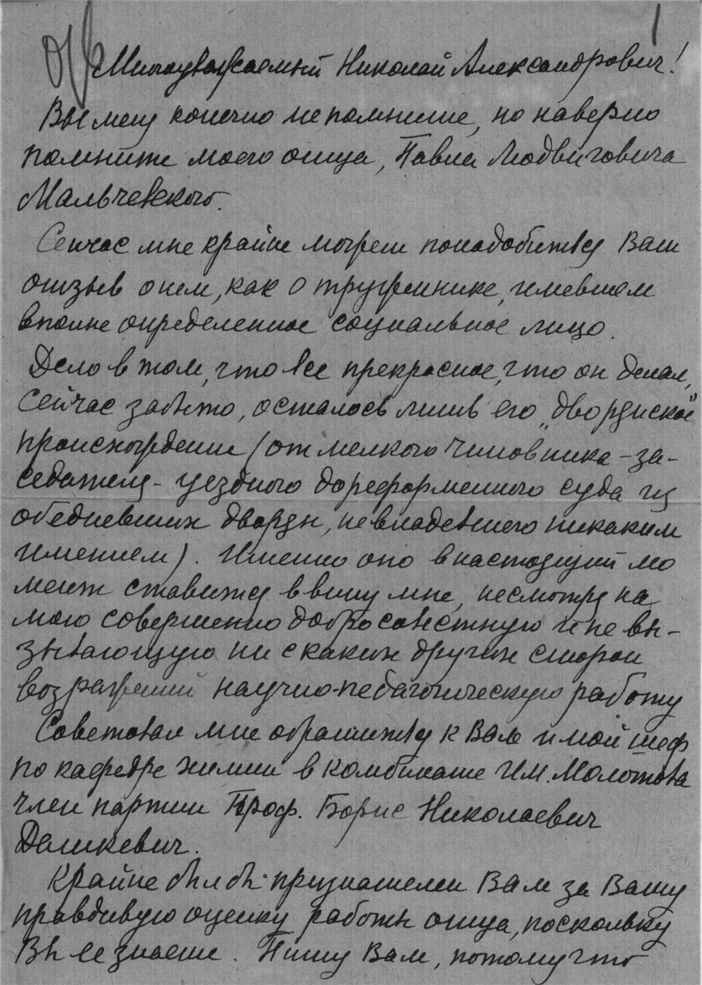 1
Многоуважаемый Николай Александрович!
Вы меня конечно не помните, но наверно
помните моего отца, Павла Людвиговича
Мальчевского.
Сейчас мне крайне может понадобиться Ваш
отзыв о нем, как о труженике, имевшем
вполне определенное социальное лицо.
Дело в том, что все прекрасное, что он делал,
сейчас забыто, осталось лишь его „дворянское"
происхождение (от мелкого чиновника – за-
седателя – уездного дореформенного суда из
обедневших дворян, не владевшего никаким
имением). Именно оно в настоящий мо
мент ставится в вину мне, несмотря на
мою совершенно добросовестную и не вы-
зывающую ни с каких других сторон
возражений научно-педагогическую работу
Советовал мне обратиться к Вам и мой шеф
по кафедре химии в комбинате им. Молотова
член партии Проф. Борис Николаевич
Дашкевич.
Крайне был бы признателен Вам за Вашу
правдивую оценку работы отца, поскольку
Вы ее знаете. Пишу Вам, потому что